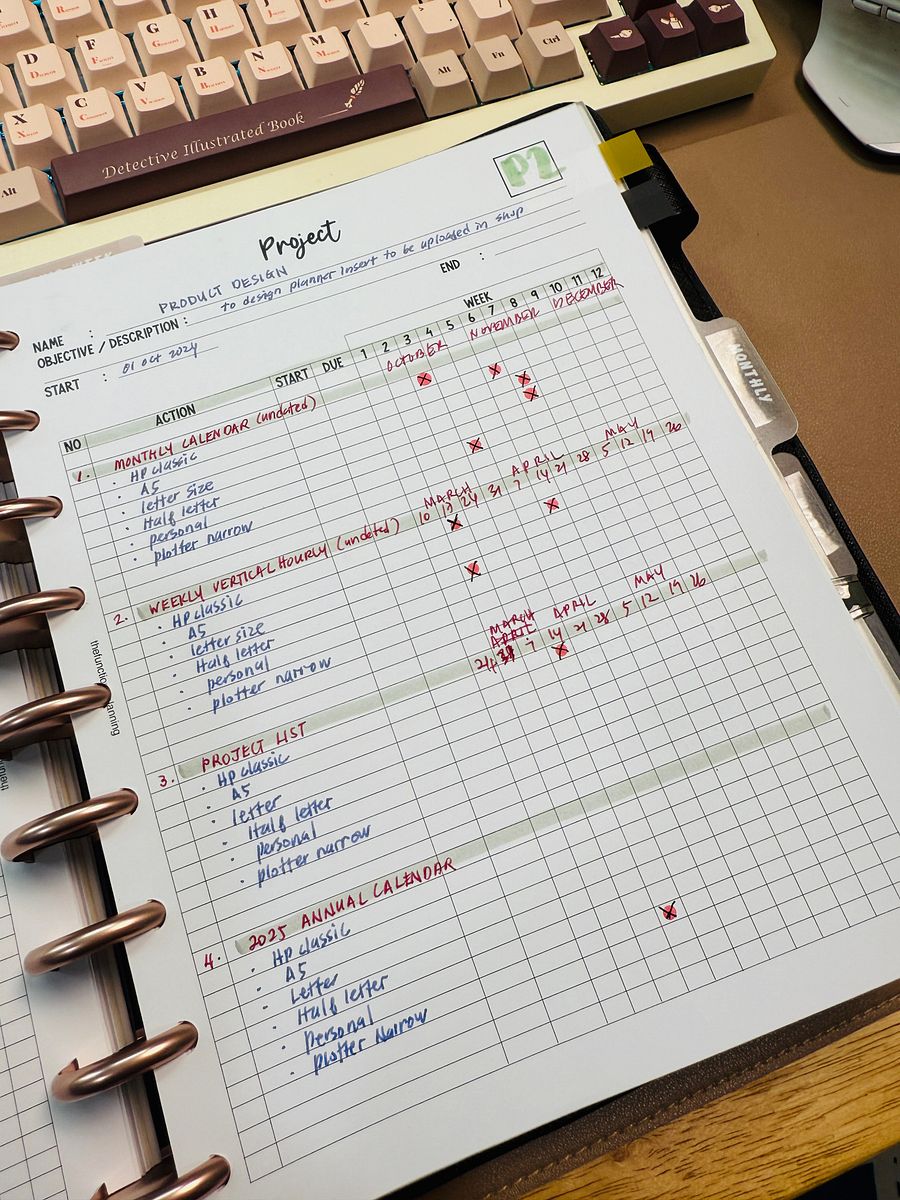 R H J < /
D F G H
D F G H N M
X C V B N M Alt Fn Ctrl
Alt Detective Illustrated Book
P2
Project
NAME : PRODUCT DESIGN
OBJECTIVE / DESCRIPTION : to design planner insert to be uploaded in shop
START : 01 Oct 2024 END :
WEEK
NO ACTION START DUE 1 2 3 4 5 6 7 8 9 10 11 12
OCTOBER NOVEMBER DECEMBER
1. MONTHLY CALENDAR (undated)
· HP classic
· A5
· letter size
· Half letter
· personal
· plotter narrow
MARCH APRIL MAY
10 17 24 31 7 14 21 28 5 12 19 26
2. WEEKLY VERTICAL HOURLY (undated)
· HP classic
· A5
· letter size
· Half letter
· personal
· plotter narrow
MARCH APRIL MAY
APRIL
24 31 7 14 21 28 5 12 19 26
3. PROJECT LIST
· HP classic
· A5
· letter
· Half letter
· personal
· plotter narrow
4. 2025 ANNUAL CALENDAR
· HP classic
· A5
· Letter
· Half letter
· Personal
· Plotter Narrow
MONTHLY